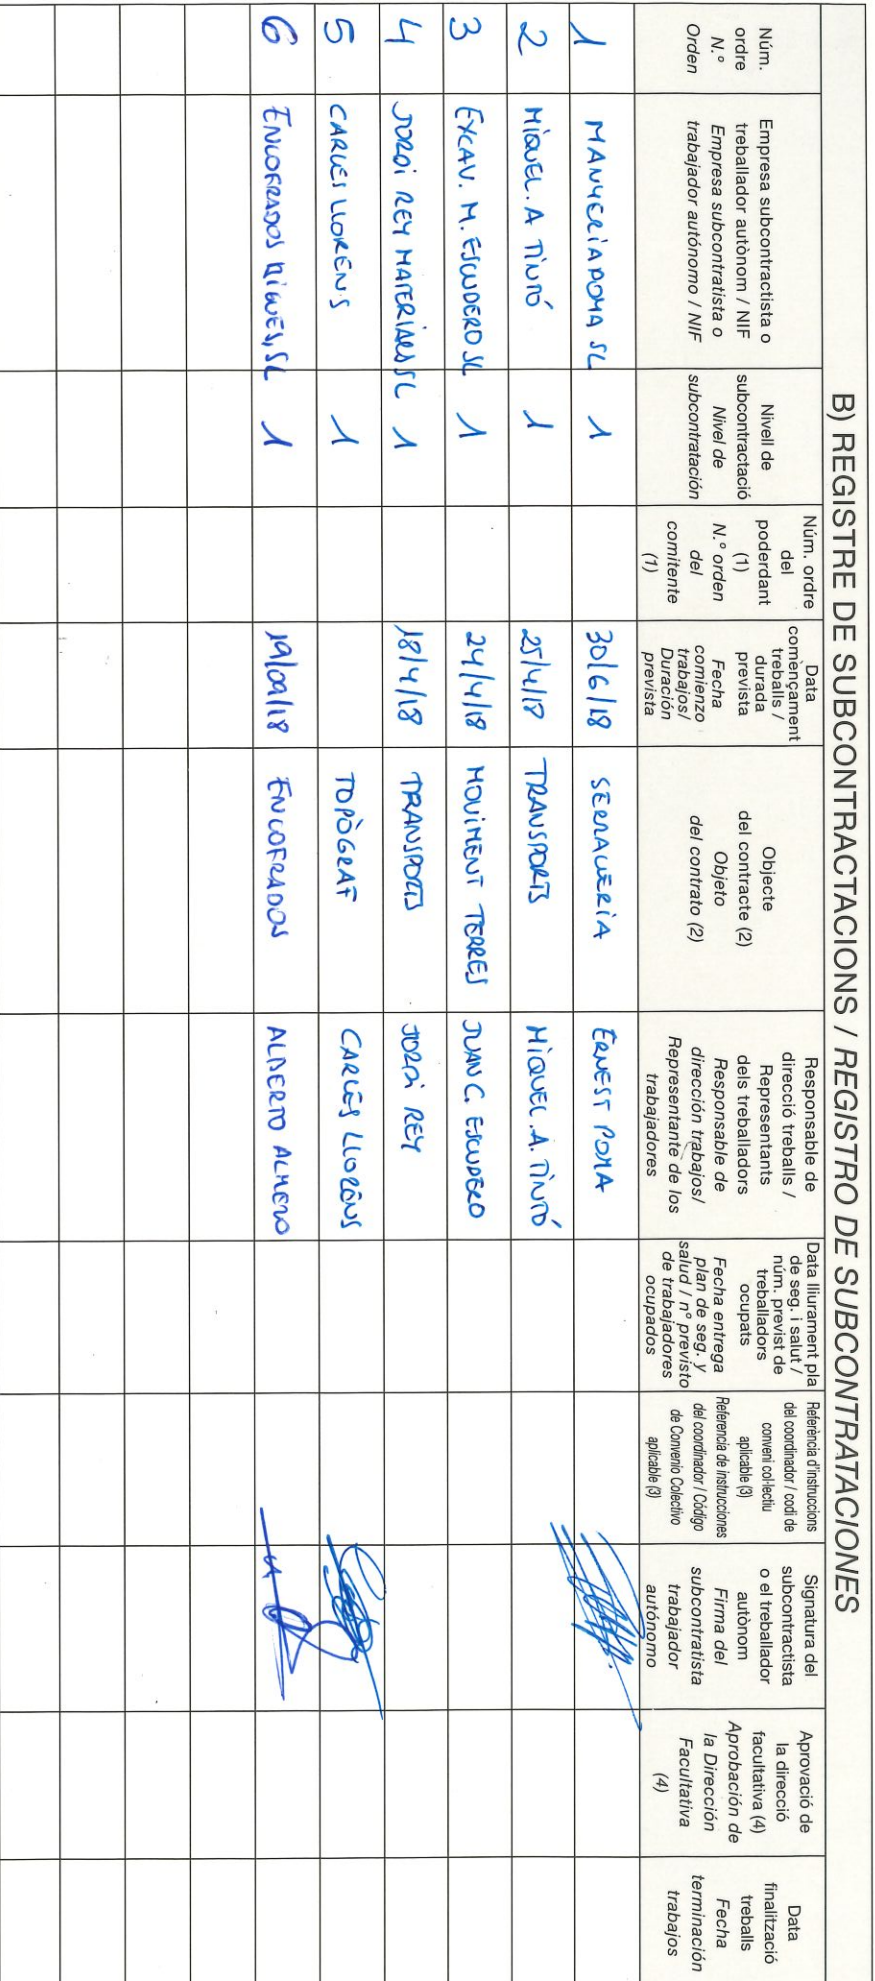 B) REGISTRE DE SUBCONTRACTACIONS / REGISTRO DE SUBCONTRATACIONES
Núm.
ordre
N.º
Orden
Empresa subcontractista o
treballador autònom / NIF
Empresa subcontratista o
trabajador autónomo / NIF
Nivell de
subcontractació
Nivel de
subcontratación
Núm. ordre
del
poderdant
(1)
N.º orden
del
comitente
(1)
Data
començament
treballs /
durada
prevista
Fecha
comienzo
trabajos/
Duración
prevista
Objecte
del contracte (2)
Objeto
del contrato (2)
Responsable de
direcció treballs /
Representants
dels treballadors
Responsable de
dirección trabajos/
Representante de los
trabajadores
Data lliurament pla
de seg. i salut /
núm. previst de
treballadors
ocupats
Fecha entrega
plan de seg. y
salud / nº previsto
de trabajadores
ocupados
Referència d'instruccions
del coordinador / codi de
conveni col·lectiu
aplicable (3)
Referencia de instrucciones
del coordinador / Código
de Convenio Colectivo
aplicable (3)
Signatura del
subcontractista
o el treballador
autònom
Firma del
subcontratista
trabajador
autónomo
Aprovació de
la direcció
facultativa (4)
Aprobación de
la Dirección
Facultativa
(4)
Data
finalització
treballs
Fecha
terminación
trabajos
1 MANYERIA POMA SL 1 30/6/18 SERRALLERIA ERNEST POMA
2 MIQUEL. A TINTÓ 1 25/4/18 TRANSPORTS MIQUEL. A. TINTÓ
3 EXCAV. M. ESCUDERO SL 1 24/4/18 MOVIMENT TERRES JUAN C. ESCUDERO
4 JORDI REY MATERIALS SL 1 18/4/18 TRANSPORTS JORDI REY
5 CARLES LLORENS 1 TOPÒGRAF CARLES LLORENS
6 ENCOFRADOS SL 1 19/09/18 ENCOFRADOS ALBERTO